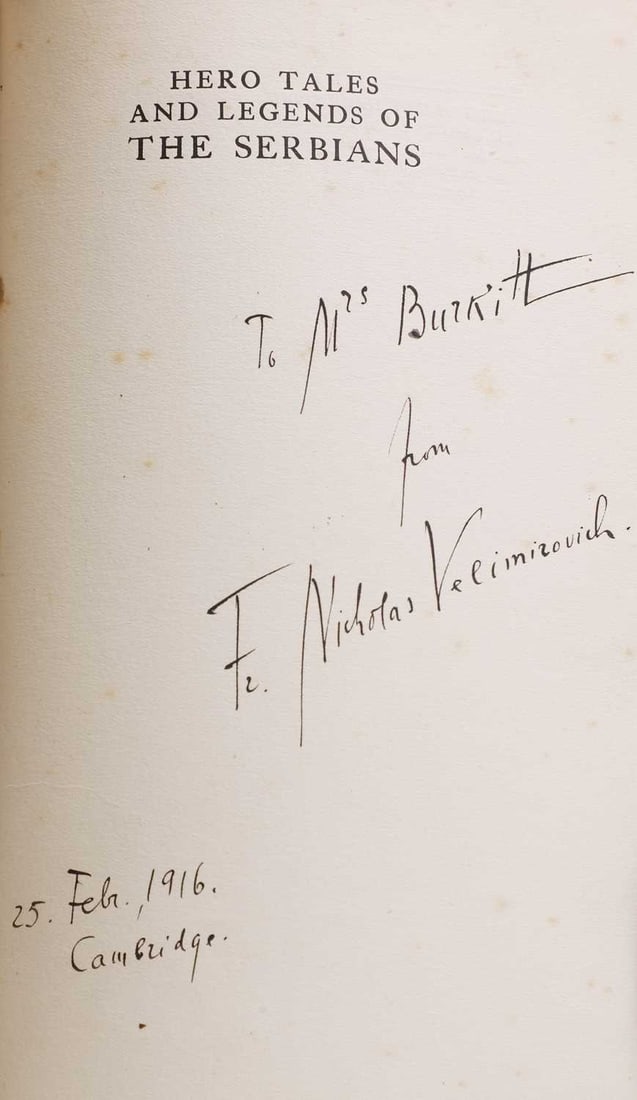 HERO TALES
AND LEGENDS OF
THE SERBIANS
To Mrs Burkitt
from
Fr. Nicholas Velimirovich.
25. Febr., 1916.
Cambridge.